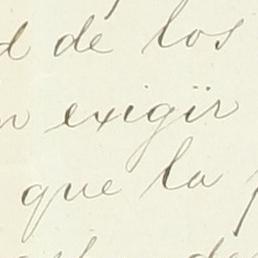 de los
exigir
que la